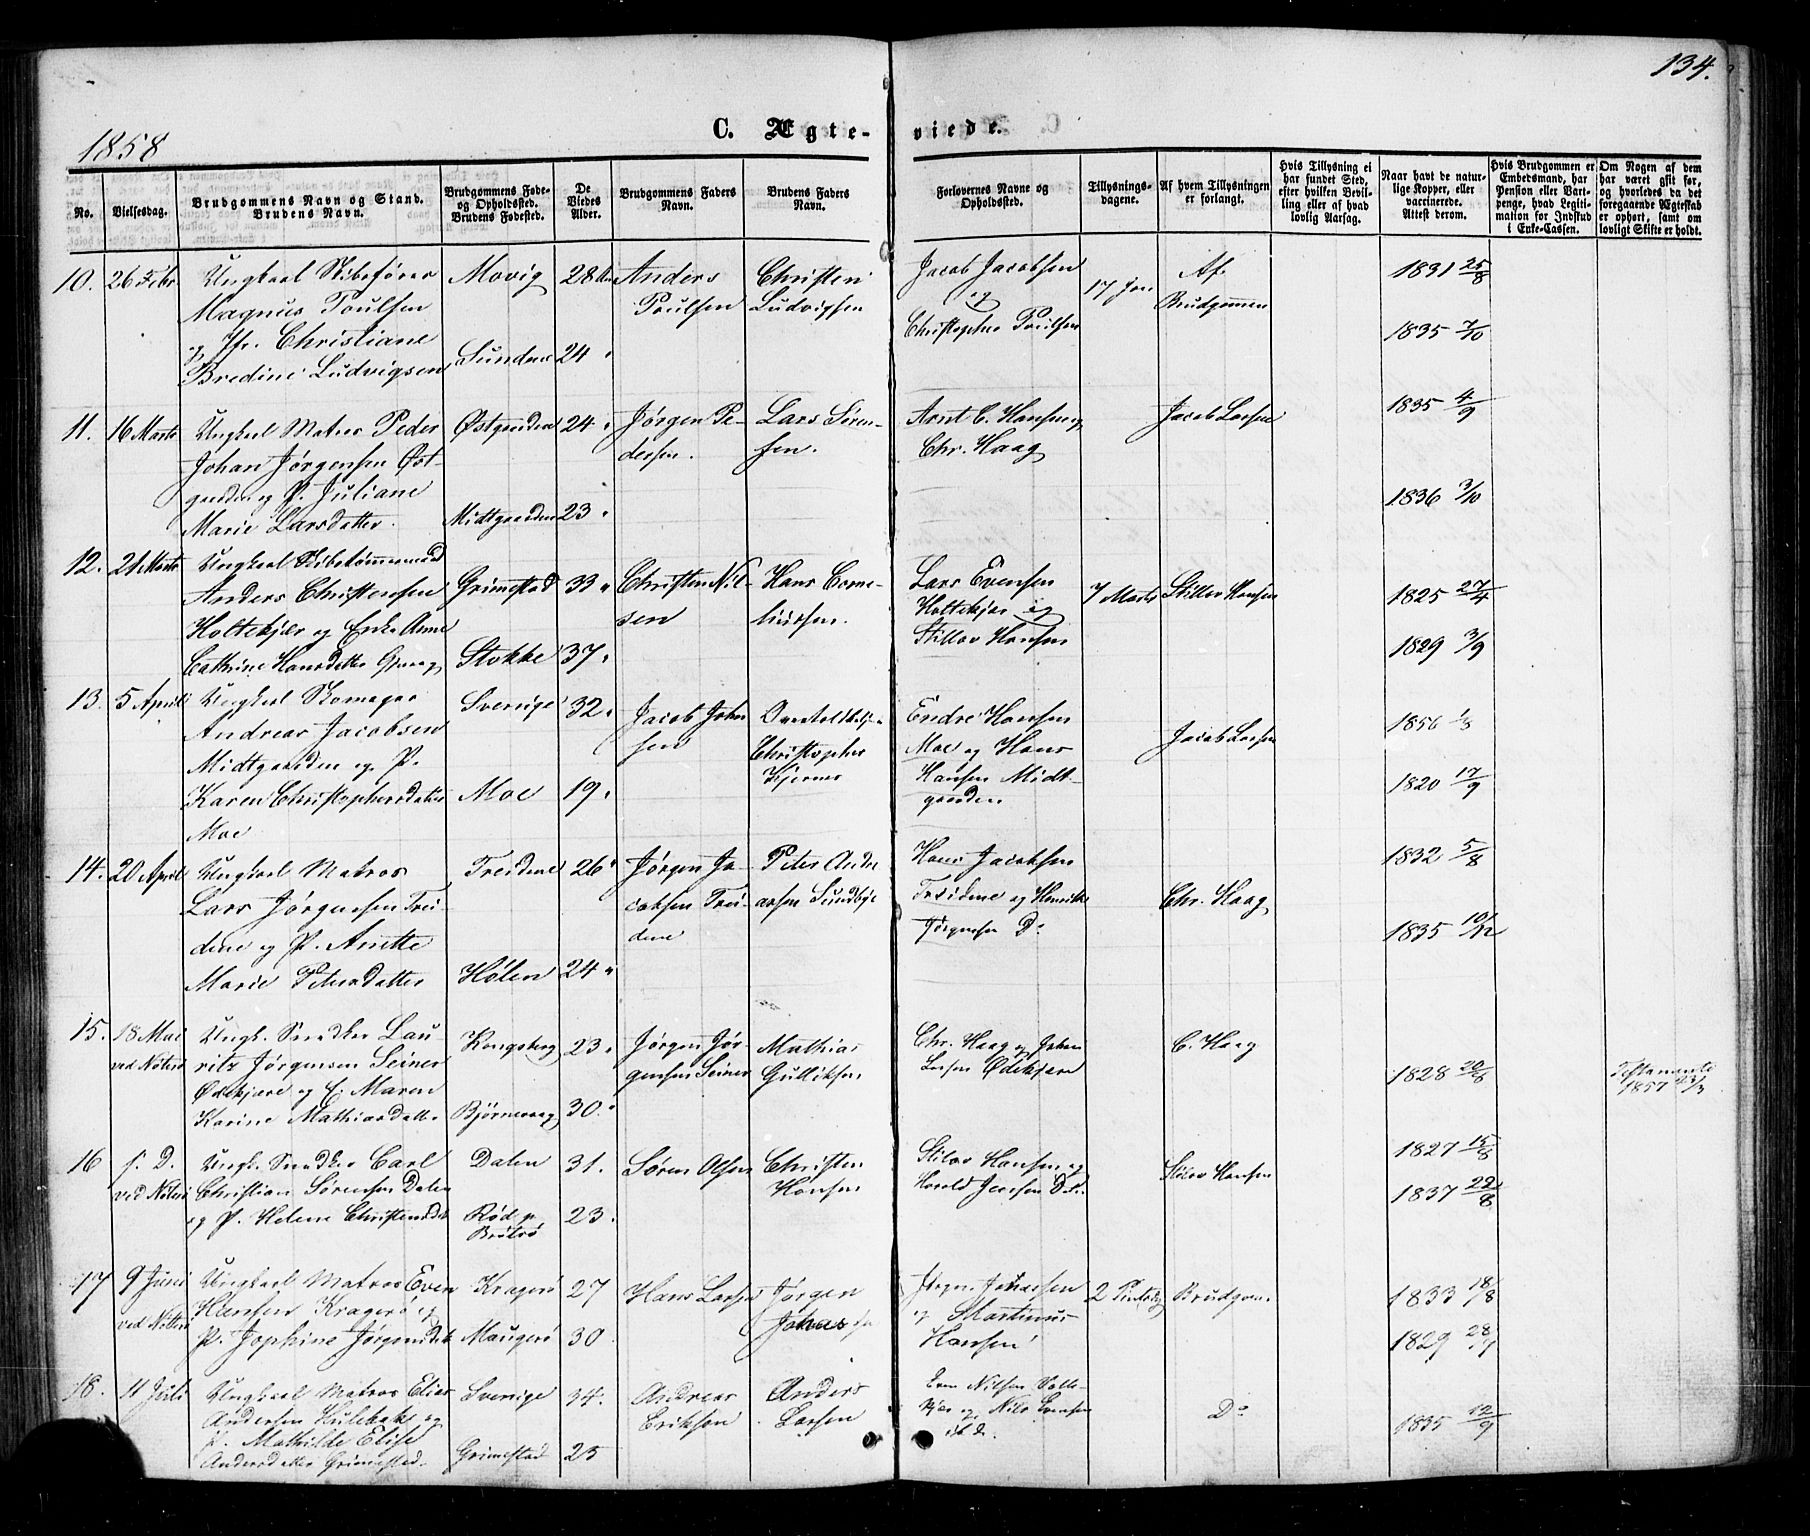 134.
1858
C. Ægte- viede.
No.
Vielsesdag.
Brudgommens Navn og Stand.
Brudens Navn.
Brudgommens Føde-
og Opholdsted.
Brudens Fødested.
De
Viedes
Alder.
Brudgommens Faders
Navn.
Brudens Faders
Navn.
Forlovernes Navne og
Opholdsted.
Tillysnings-
dagene.
Af hvem Tillysningen
er forlangt.
Hvis Tillysning ei
har fundet Sted,
efter hvilken Bevil-
ling eller af hvad
lovlig Aarsag.
Naar havt de natur-
lige Kopper, eller
vaccinerede.
Attest derom.
Hvis Brudgommen er
Embedsmand, har
Pension eller Vart-
penge, hvad Legiti-
mation for Indskud
i Enke-Cassen.
Om Nogen af dem
har været gift før,
og hvorledes da det
foregaaende Ægteskab
er ophørt, samt om
lovligt Skifte er holdt.
10. 26 Febr
Ungkarl Skibsfører
Magnus Poulsen
og Jfr. Christiane
Bredine Ludvigsen
Movig
Sundene
28
24
Anders
Poulsen
Christen
Ludvigsen
Jacob Jacobsen
og
Christopher Poulsen
17 Jan
Af
Brudgommen
1831 25/8
1835 7/10
11. 16 Marts
Ungkarl Matros Peder
Johan Jørgensen Øst-
gaarden og P. Juliane
Marie Larsdatter.
Østgaarden
Midtgaarden
24
23
Jørgen Pe-
dersen.
Lars Søren-
sen.
Arnt C. Hansen og
Chr. Haag
Jacob Larsen
1835 4/9
1836 3/10
12. 21 Marts
Ungkarl Skibstømmermd
Anders Christensen
Holtekjær og Enke Anne
Cathrine Hansdatter
Grimestad
Stokke
33
37
Christen Nil-
sen
Hans Corne-
liussen.
Lars Evensen
Holtekjær og
Stillov Hansen
7 Marts
Stillov Hansen
1825 27/4
1829 3/9
13. 5 April
Ungkarl Skomager
Andreas Jacobsen
Midtgaarden og P.
Karen Christophersdatter
Moe
Sverige
Moe
32
19
Jacob Johan
sen
Christopher
Kjernes
Endre Hansen
Moe og Hans
Hansen Midt-
gaarden.
Jacob Larsen
1856 1/8
1820 17/9
14. 20 April
Ungkarl Matros
Lars Jørgensen Trei-
dene og P. Anette
Marie Petersdatter
Treidene
Hølen
26
24
Jørgen Ja-
cobsen Trei-
dene
Peter Andre
asen Sundbye
Hans Jacobsen
Treidene og Henrik
Jørgensen Do
Chr. Haag
1832 5/8
1835 10/12
15. 18 Mai
ved Nøterø
Ungk. Snedker Lau-
ritz Jørgensen Seiner
Ødekjære og E. Maren
Karine Mathiasdatter
Kongsberg
Bjørnevaag
23.
30.
Jørgen Jør-
gensen Seiner
Mathias
Gulliksen
Chr. Haag og Johan
Larsen Ødekjære
C. Haag
1828 20/8
Testamente
1857
16 s. D.
ved Nøterø
Ungk. Snedker Carl
Christian Sørensen Dalen
og P. Helene Christensdat
Dalen
Rød p
Brøtsø
31.
23.
Søren Olsen
Christen
Hansen
Stilov Hansen og
Harald Jensen
Stilov Hansen
1827 15/8
1837 22/8
17 9 Juni
ved Nøterø
Ungkarl Matros Even
Hansen Kragerø og
P. Josephine Jørgensdat
Kragerø
Maugerø
27
30
Hans Larsen
Jørgen
Johansen
Jørgen Johansen
og Martinus
Hansen
2 Pintsedag
Brudgom.
1833 18/8
1829
18. 11 Juli
Ungkarl Matros Elias
Andersen Hulebak og
P. Mathilde Elise
Andersdatter Grimestad.
Sverige
Grimestad
34.
25
Andreas
Eriksen
Anders
Larsen
Even Nilsen Holte-
kjær og Nils Svensen
ibd.
Do
1835 12/9